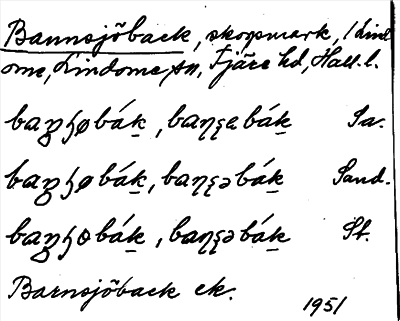 Barnsjöback, skogsmark, i Lind
ome, Lindome sn, Fjäre hd, Hall. l.
baꞑɧøbák̠, baɳʂəbák̠ Sa.
baꞑɧøbák̠, baɳʂəbák̠ Sand.
baꞑɧobák̠, baɳʂəbák̠ St.
Barnsjöback ek.
1951